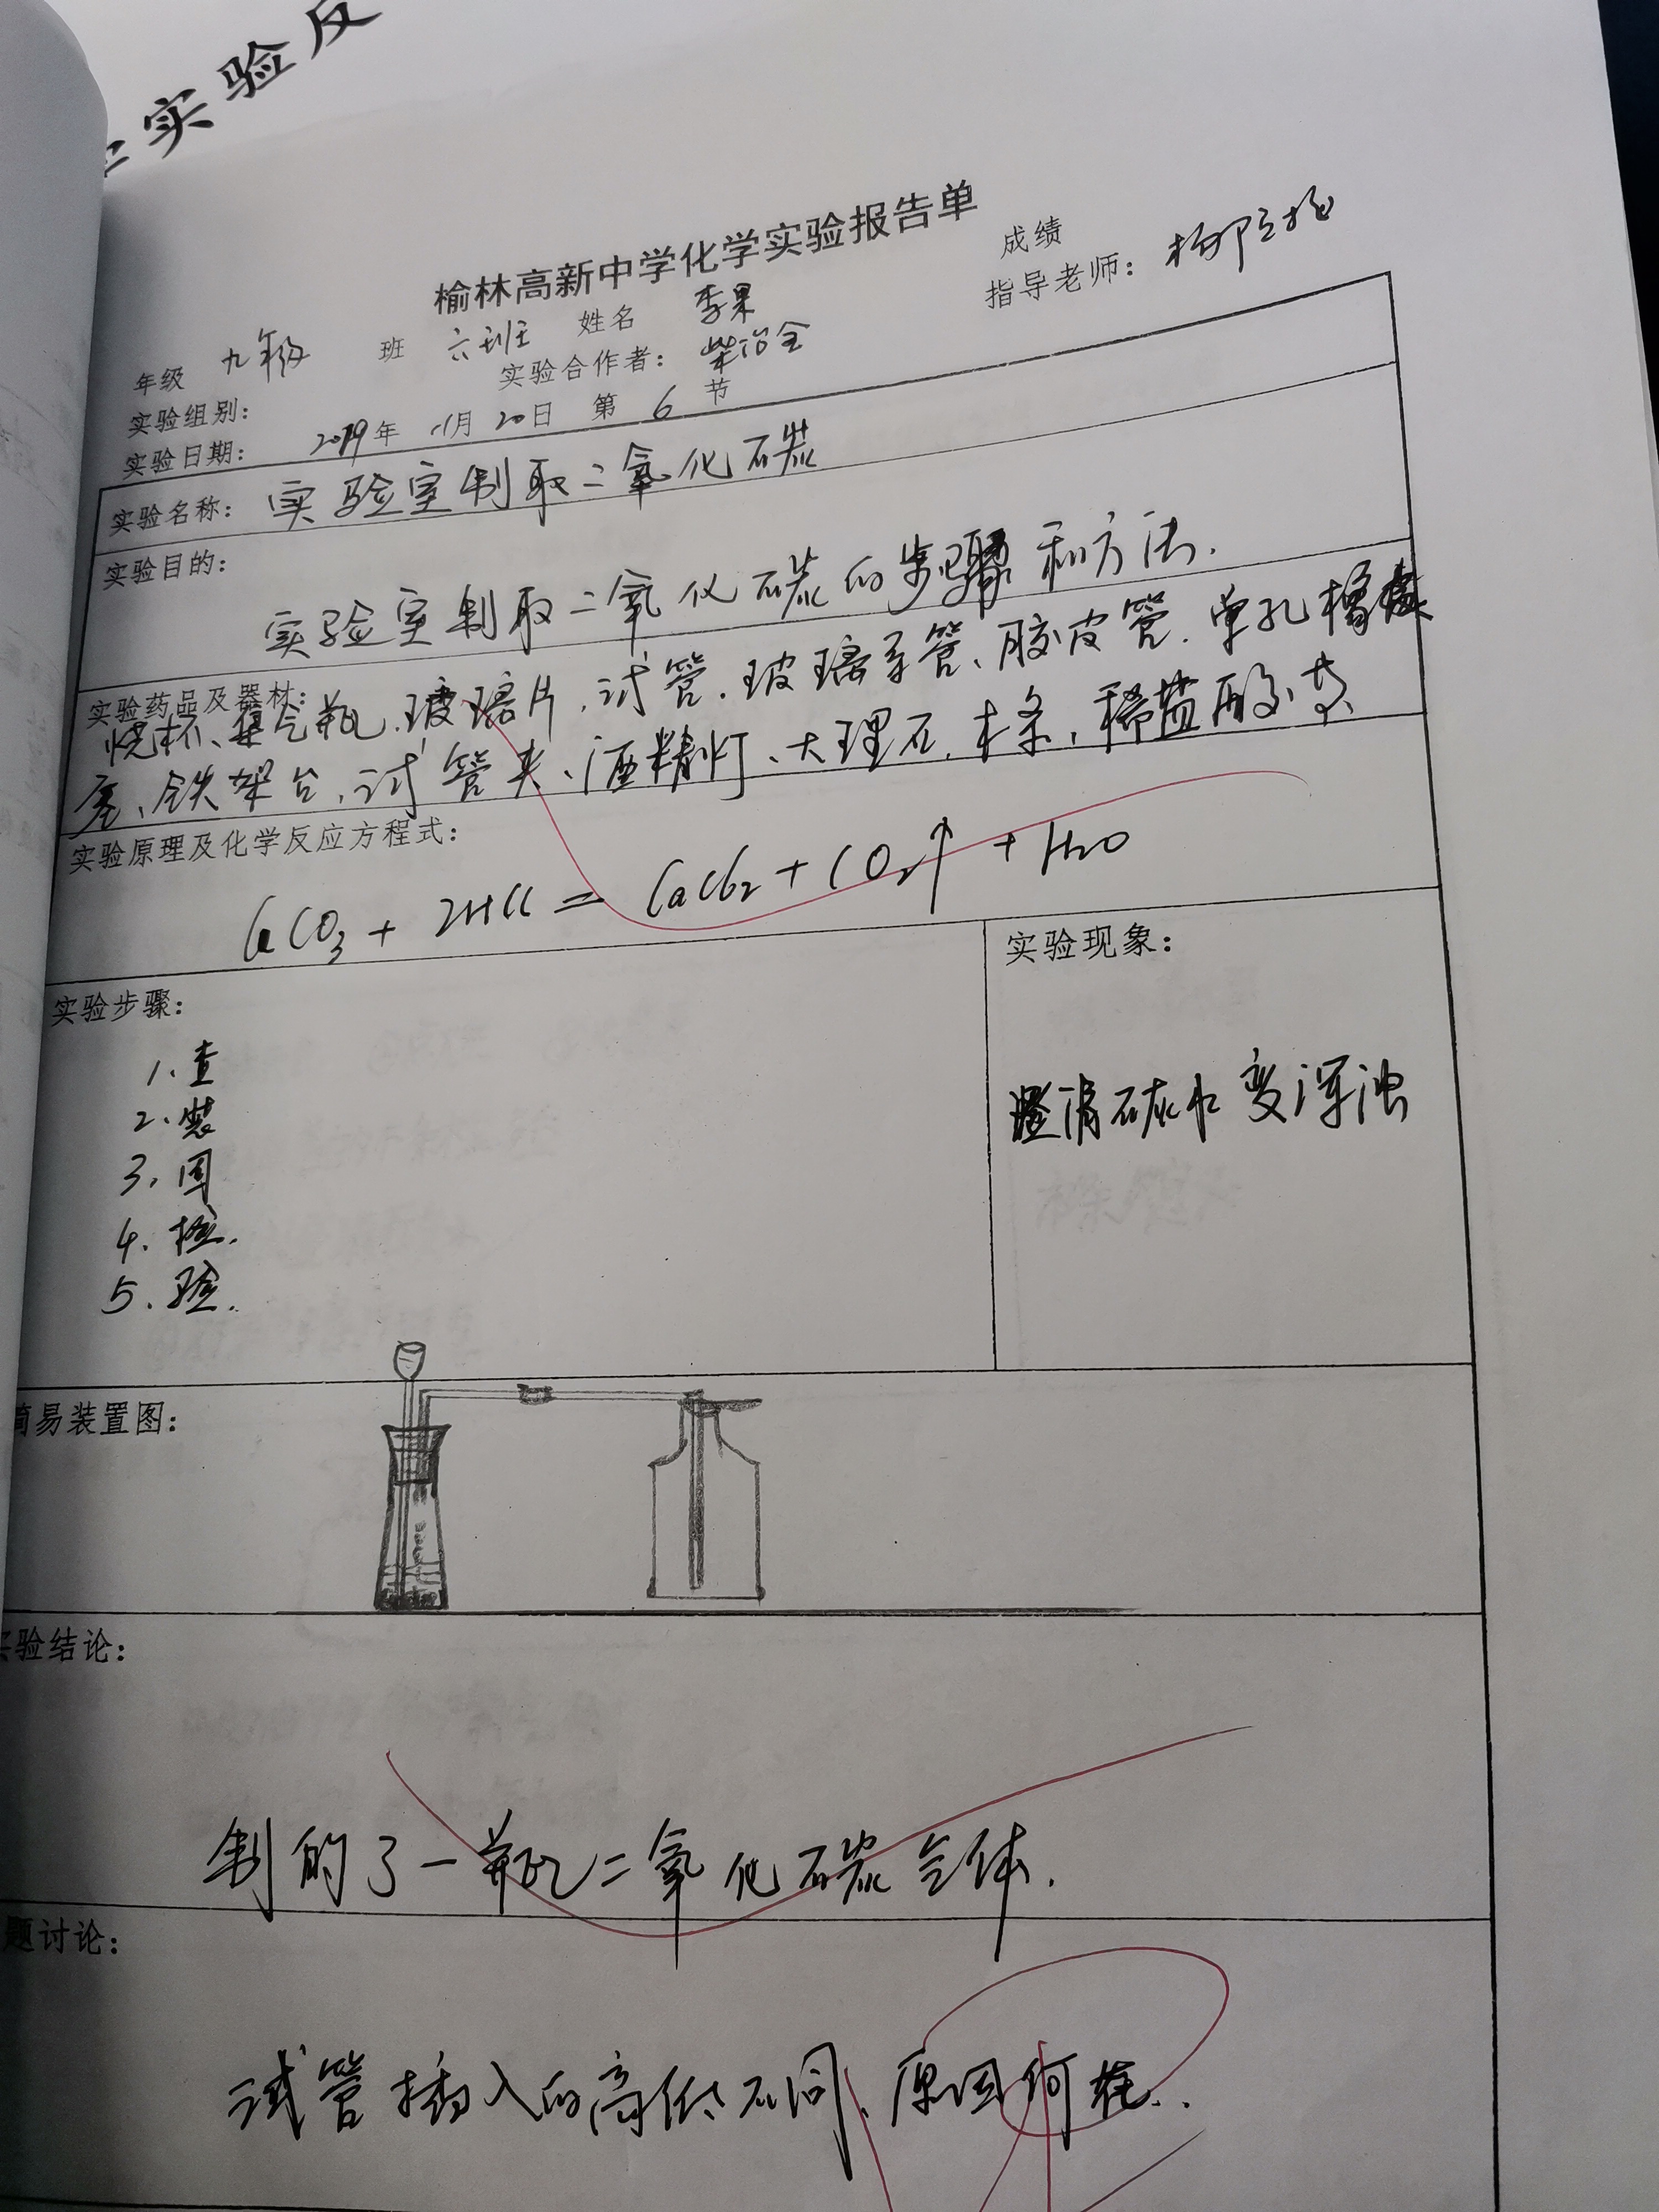 实验反
榆林高新中学化学实验报告单
成绩
年级 九年级 班 六班 姓名 李果
指导老师:
实验组别: 实验合作者: 柴治全
实验日期: 2019年 11月 20日 第 6 节
实验名称: 实验室制取二氧化碳
实验目的:
实验室制取二氧化碳的步骤和方法.
实验药品及器材:
烧杯、集气瓶、玻璃片、试管、玻璃导管、胶皮管、单孔橡皮
塞、铁架台、试管夹、酒精灯、大理石、木条、稀盐酸
实验原理及化学反应方程式:
CaCO3 + 2HCl = CaCl2 + CO2↑ + H2O
实验步骤:
1、查
2、装
3、固
4、检.
5、验.
实验现象:
澄清石灰水变浑浊
简易装置图:
实验结论:
制的了一瓶二氧化碳气体.
题讨论:
试管插入的高低不同、原因何在..